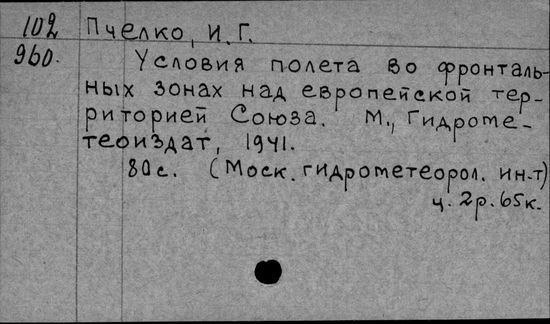 102 Пчелко, И. Г.
960. Условия полета во фронталь-
ных зонах над европейской тер-
риторией Союза. М., Гидроме-
теоиздат, 1941.
80с. (Моск. гидрометеорол. ин-т)
ц. 2р. 65к.